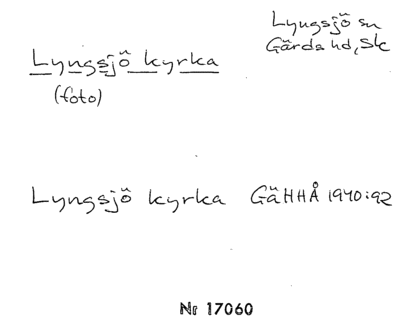 Lyngsjö sn
Gärds hd, Sk
Lyngsjö kyrka
(foto)
Lyngsjö kyrka GäHHÅ 1940:92
Nr 17060